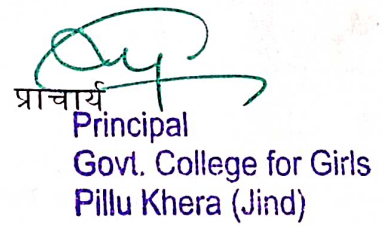 प्राचार्य
Principal
Govt. College for Girls
Pillu Khera (Jind)